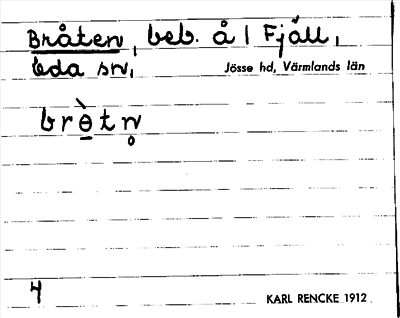 Bråten, beb. å 1 Fjäll,
Eda sn, Jösse hd, Värmlands län
brɵ̀tn̥
4 KARL RENCKE 1912